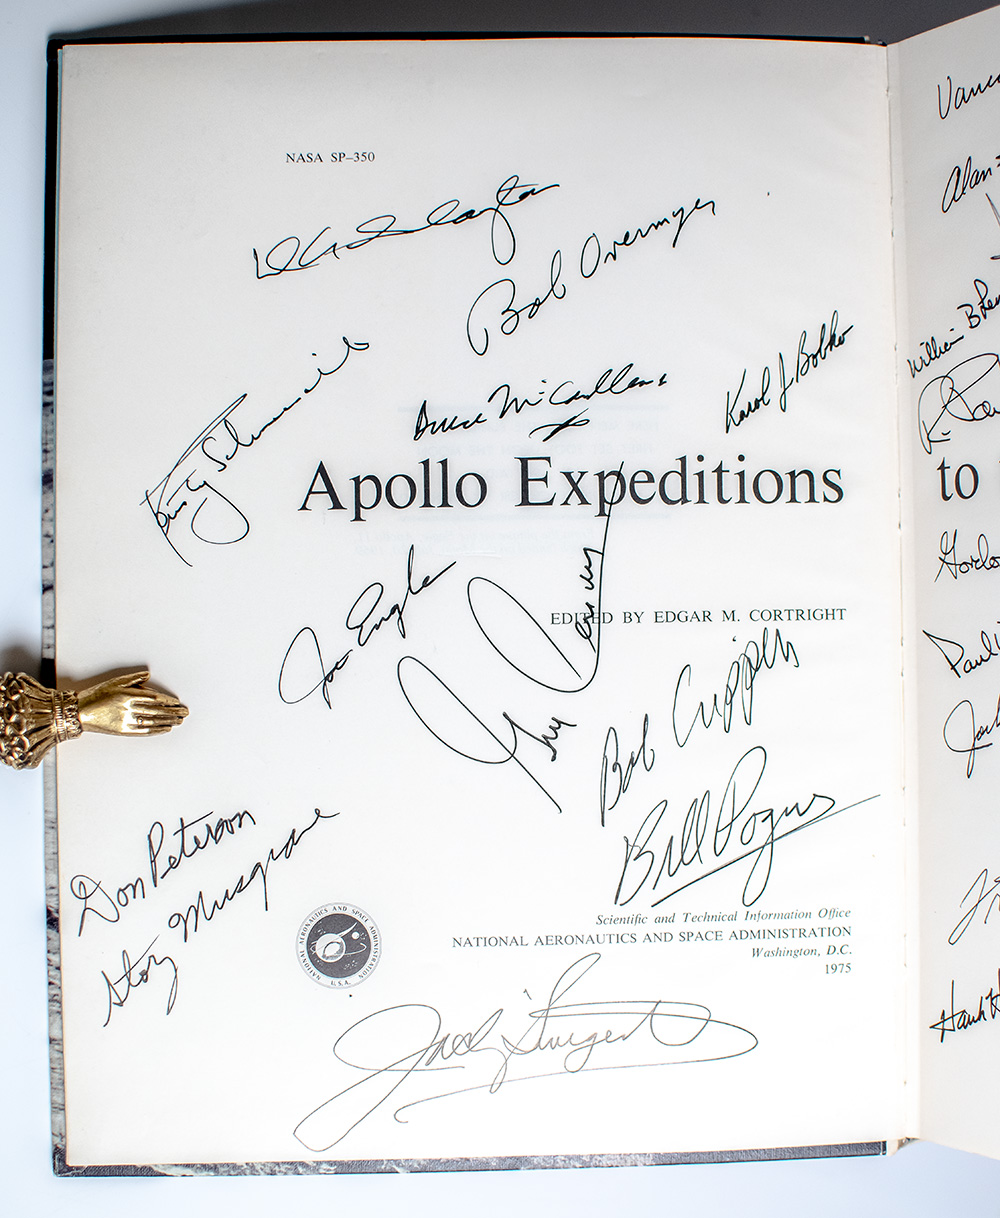 NASA SP–350
D K Slayton
Bob Overmyer
Rusty Schweick
Bruce McCandless
Karol J Bobko
Apollo Expeditions
Joe Engle
EDITED BY EDGAR M. CORTRIGHT
Guy
Bob Crippen
Bill Pogue
Don Peterson
Story Musgrave
NATIONAL AERONAUTICS AND SPACE ADMINISTRATION
U.S.A.
Scientific and Technical Information Office
NATIONAL AERONAUTICS AND SPACE ADMINISTRATION
Washington, D.C.
1975
Jack Swigert
Vanc
Alan
William B Len
R.
to
Gordo
Pauli
Jack
Hank H